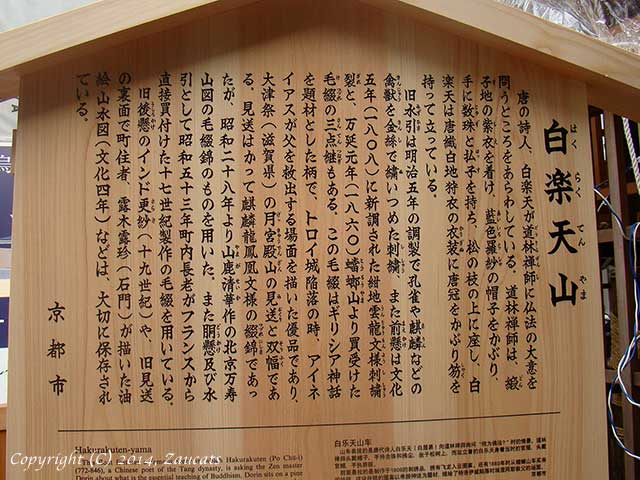 白楽天山
はく らく てん やま
唐の詩人、白楽天が道林禅師に仏法の大意を
問うところをあらわしている。道林禅師は、緞
子地の紫衣を着け、藍色羅紗の帽子をかぶり、
手に数珠と払子を持ち、松の枝の上に座し、白
楽天は唐織白地狩衣の衣裳に唐冠をかぶり笏を
持って立っている。
旧水引は明治五年の調製で孔雀や麒麟などの
禽獣を金絲で繍いつめた刺繍、また前懸は文化
五年(一八〇八)に新調された紺地雲龍文様刺繍
裂と、万延元年(一八六〇)蟷螂山より買受けた
毛綴の三点継もある。この毛綴はギリシア神話
を題材とした柄で、トロイ城陥落の時、アイネ
イアスが父を救出する場面を描いた優品であり、
大津祭(滋賀県)の月宮殿山の見送と双幅であ
る。見送はかつて麒麟龍鳳凰文様の綴錦であっ
たが、昭和二十八年より山鹿清華作の北京万寿
山図の毛綴錦のものを用いた、また胴懸及び水
引として昭和五十三年町内長老がフランスから
直接買付けた十七世紀製作の毛綴を用いている。
旧後懸のインド更紗(十九世紀)や、旧見送
の裏面で町住者、露木露珍(石門)が描いた油
絵山水図(文化四年)などは、大切に保存され
ている。
京都市
Hakurakuten-yama
Hakurakuten (Po Chü-i)
(772-846), a Chinese poet of the Tang dynasty, is asking the Zen master
Dorin about what is the essential teaching of Buddhism. Dorin sits on a pine
白乐天山车
Copyright (C) 2014, Zaucats